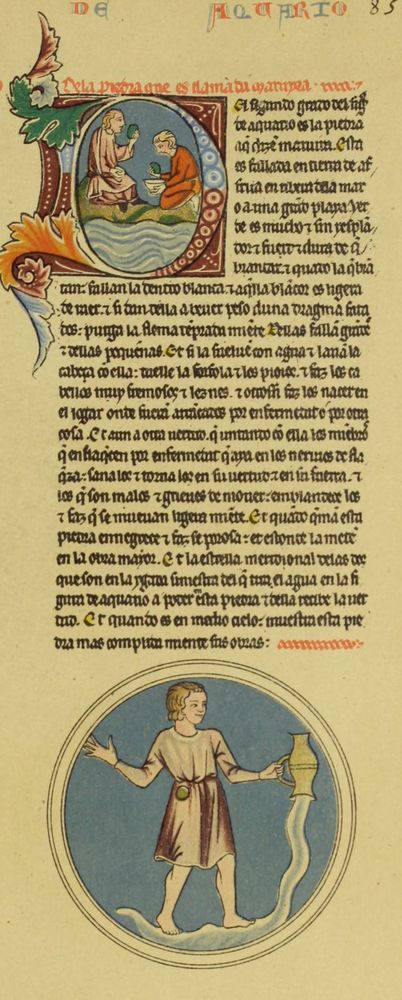 DE AQUARIO 85
De la piedra que es llamada
El segundo grado del sig
de aquario es la piedra
a q̃ dizen Esta
es fallada en tierra de af
frica en riuera dela mar
o a una grãd playa Uer
de es mucho ⁊ sin resplã
dor ⁊ fuert ⁊ dura de q̃
brantar. ⁊ quãdo la q̃brã
tan: fallan la dentro blanca. ⁊ aq̃lla blãcor es ligera
de raer. ⁊ si dan della a beuer peso duna dragma fata
dos: purga la flema tẽprada miẽte. Dellas fallã grãdes
⁊ dellas pequennas. Et si la fueluẽ con agua ⁊ lauã la
cabeça cõ ella: tuelle la forfola ⁊ los pioios. ⁊ faz los ca
bellos muy fremosos ⁊ leznes. ⁊ otrossi faz los nacer en
el logar onde fuerã arrãcados por enfermedat o por otra
cosa. Et aun a otra uertud. q̃ untando cõ ella los miẽbros
q̃ enflaq̃cen por enfermedat q̃ aya en los neruios de fla
q̃za: sana los ⁊ torna los en su uertud ⁊ en su fuerça. ⁊
los q̃ son malos ⁊ grieues de mouer: emblandece los
⁊ faz q̃ se mueuan ligera miẽte. Et quãdo q̃mã esta
piedra ennegrece ⁊ faz se porosa: et estonce la metẽ
en la obra mayor. Et la estrella meridional delas dos
que son en la yjada siniestra del q̃ tira el agua en la fi
gura de aquario a poder en esta piedra ⁊ della recibe la uer
tud. Et quando es en medio cielo: muestra esta pie
dra mas complida miente sus obras: